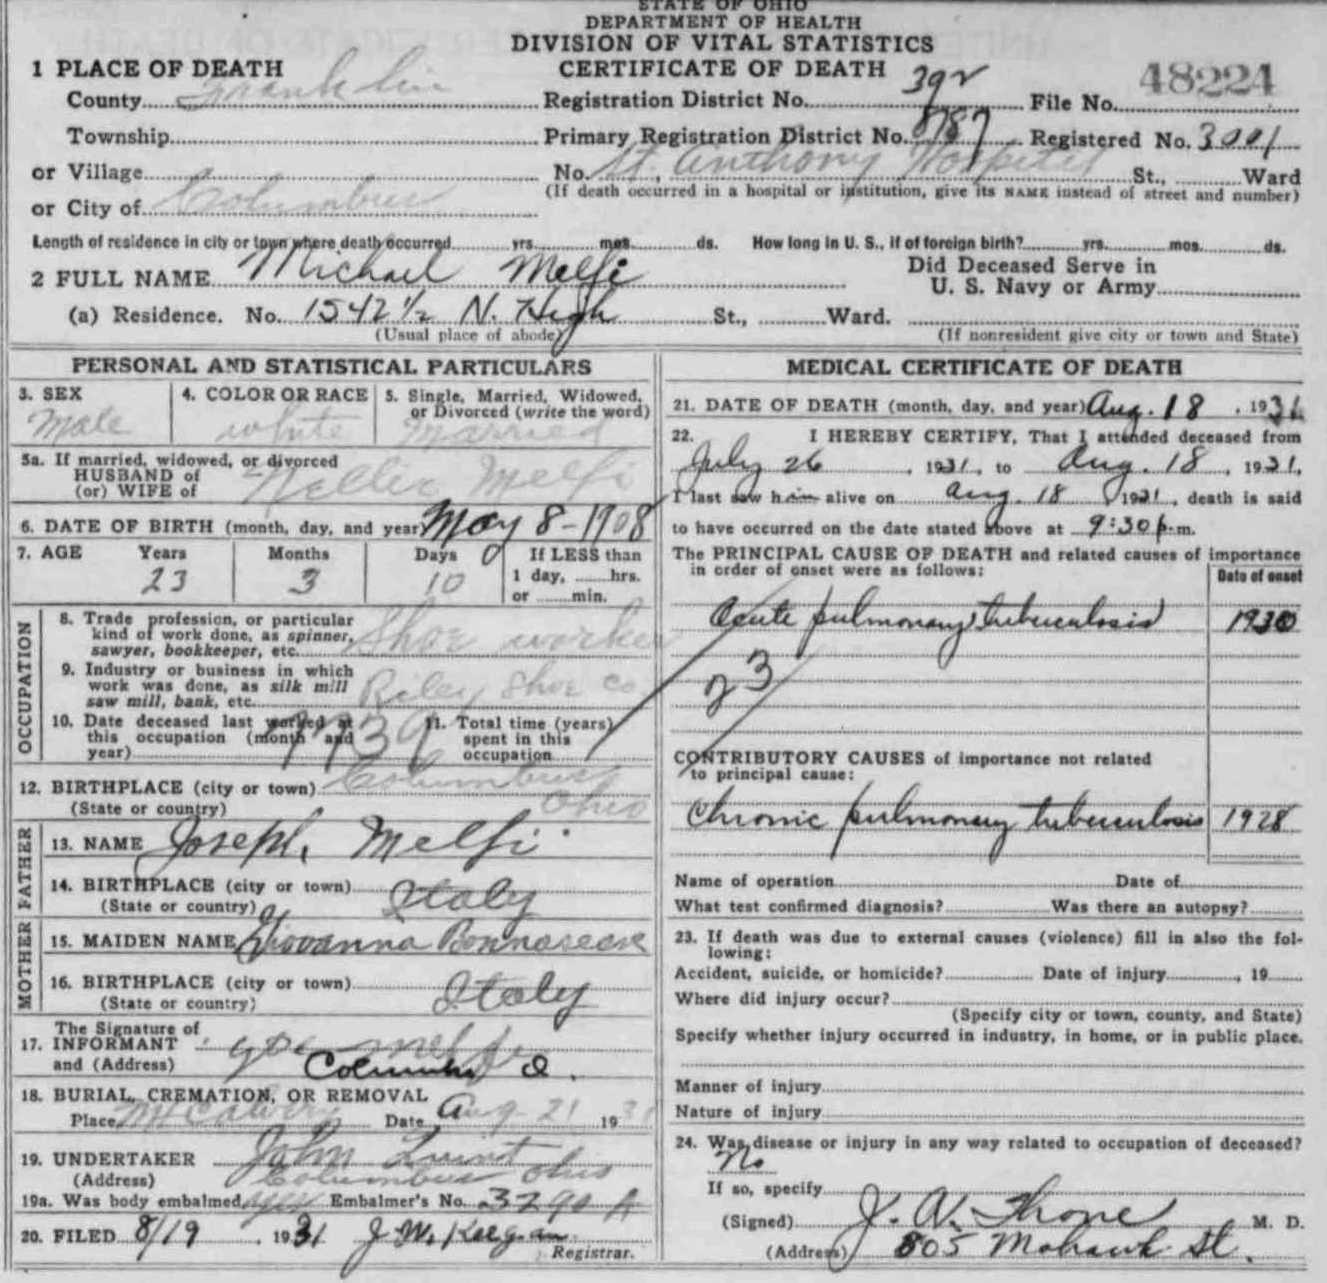 STATE OF OHIO
DEPARTMENT OF HEALTH
DIVISION OF VITAL STATISTICS
CERTIFICATE OF DEATH
48224
1 PLACE OF DEATH
County Franklin Registration District No. 392 File No.
Township Primary Registration District No. 8187 Registered No. 3001
or Village No. St. Anthony Hospital St., Ward
(If death occurred in a hospital or institution, give its NAME instead of street and number)
or City of Columbus
Length of residence in city or town where death occurred yrs. mos. ds. How long in U. S., if of foreign birth? yrs. mos. ds.
2 FULL NAME Michael Melfi Did Deceased Serve in U. S. Navy or Army
(a) Residence. No. 1542 1/2 N. High St., Ward.
(Usual place of abode) (If nonresident give city or town and State)
PERSONAL AND STATISTICAL PARTICULARS
3. SEX Male
4. COLOR OR RACE white
5. Single, Married, Widowed, or Divorced (write the word) Married
5a. If married, widowed, or divorced
HUSBAND of
(or) WIFE of Nellie Melfi
6. DATE OF BIRTH (month, day, and year) May 8-1908
7. AGE Years Months Days If LESS than
23 3 10 1 day, hrs.
or min.
OCCUPATION
8. Trade profession, or particular
kind of work done, as spinner,
sawyer, bookkeeper, etc. Shoe worker
9. Industry or business in which
work was done, as silk mill
saw mill, bank, etc. Riley Shoe Co
10. Date deceased last worked at
this occupation (month and
year)
11. Total time (years)
spent in this
occupation
12. BIRTHPLACE (city or town) Columbus
(State or country) Ohio
FATHER
13. NAME Joseph Melfi
14. BIRTHPLACE (city or town)
(State or country) Italy
MOTHER
15. MAIDEN NAME Giovanna
16. BIRTHPLACE (city or town)
(State or country) Italy
The Signature of
17. INFORMANT Joe Melfi
and (Address) Columbus O.
18. BURIAL, CREMATION, OR REMOVAL
Place Mt Calvery Date Aug 21 1931
19. UNDERTAKER John Quint
(Address) Columbus Ohio
19a. Was body embalmed yes Embalmer's No. 3290 A
20. FILED 8/19, 1931 J. W. Keegan
Registrar.
MEDICAL CERTIFICATE OF DEATH
21. DATE OF DEATH (month, day, and year) Aug. 18, 1931
22. I HEREBY CERTIFY, That I attended deceased from
July 26, 1931, to Aug. 18, 1931,
I last saw him alive on Aug. 18 1931, death is said
to have occurred on the date stated above at 9:30 p.m.
The PRINCIPAL CAUSE OF DEATH and related causes of importance
in order of onset were as follows:
Date of onset
Acute pulmonary tuberculosis 1930
23
CONTRIBUTORY CAUSES of importance not related
to principal cause:
Chronic pulmonary tuberculosis 1928
Name of operation Date of
What test confirmed diagnosis? Was there an autopsy?
23. If death was due to external causes (violence) fill in also the fol-
lowing:
Accident, suicide, or homicide? Date of injury , 19
Where did injury occur?
(Specify city or town, county, and State)
Specify whether injury occurred in industry, in home, or in public place.
Manner of injury
Nature of injury
24. Was disease or injury in any way related to occupation of deceased?
No
If so, specify
(Signed) J. A. Thone M. D.
(Address) 805 Mohawk St.